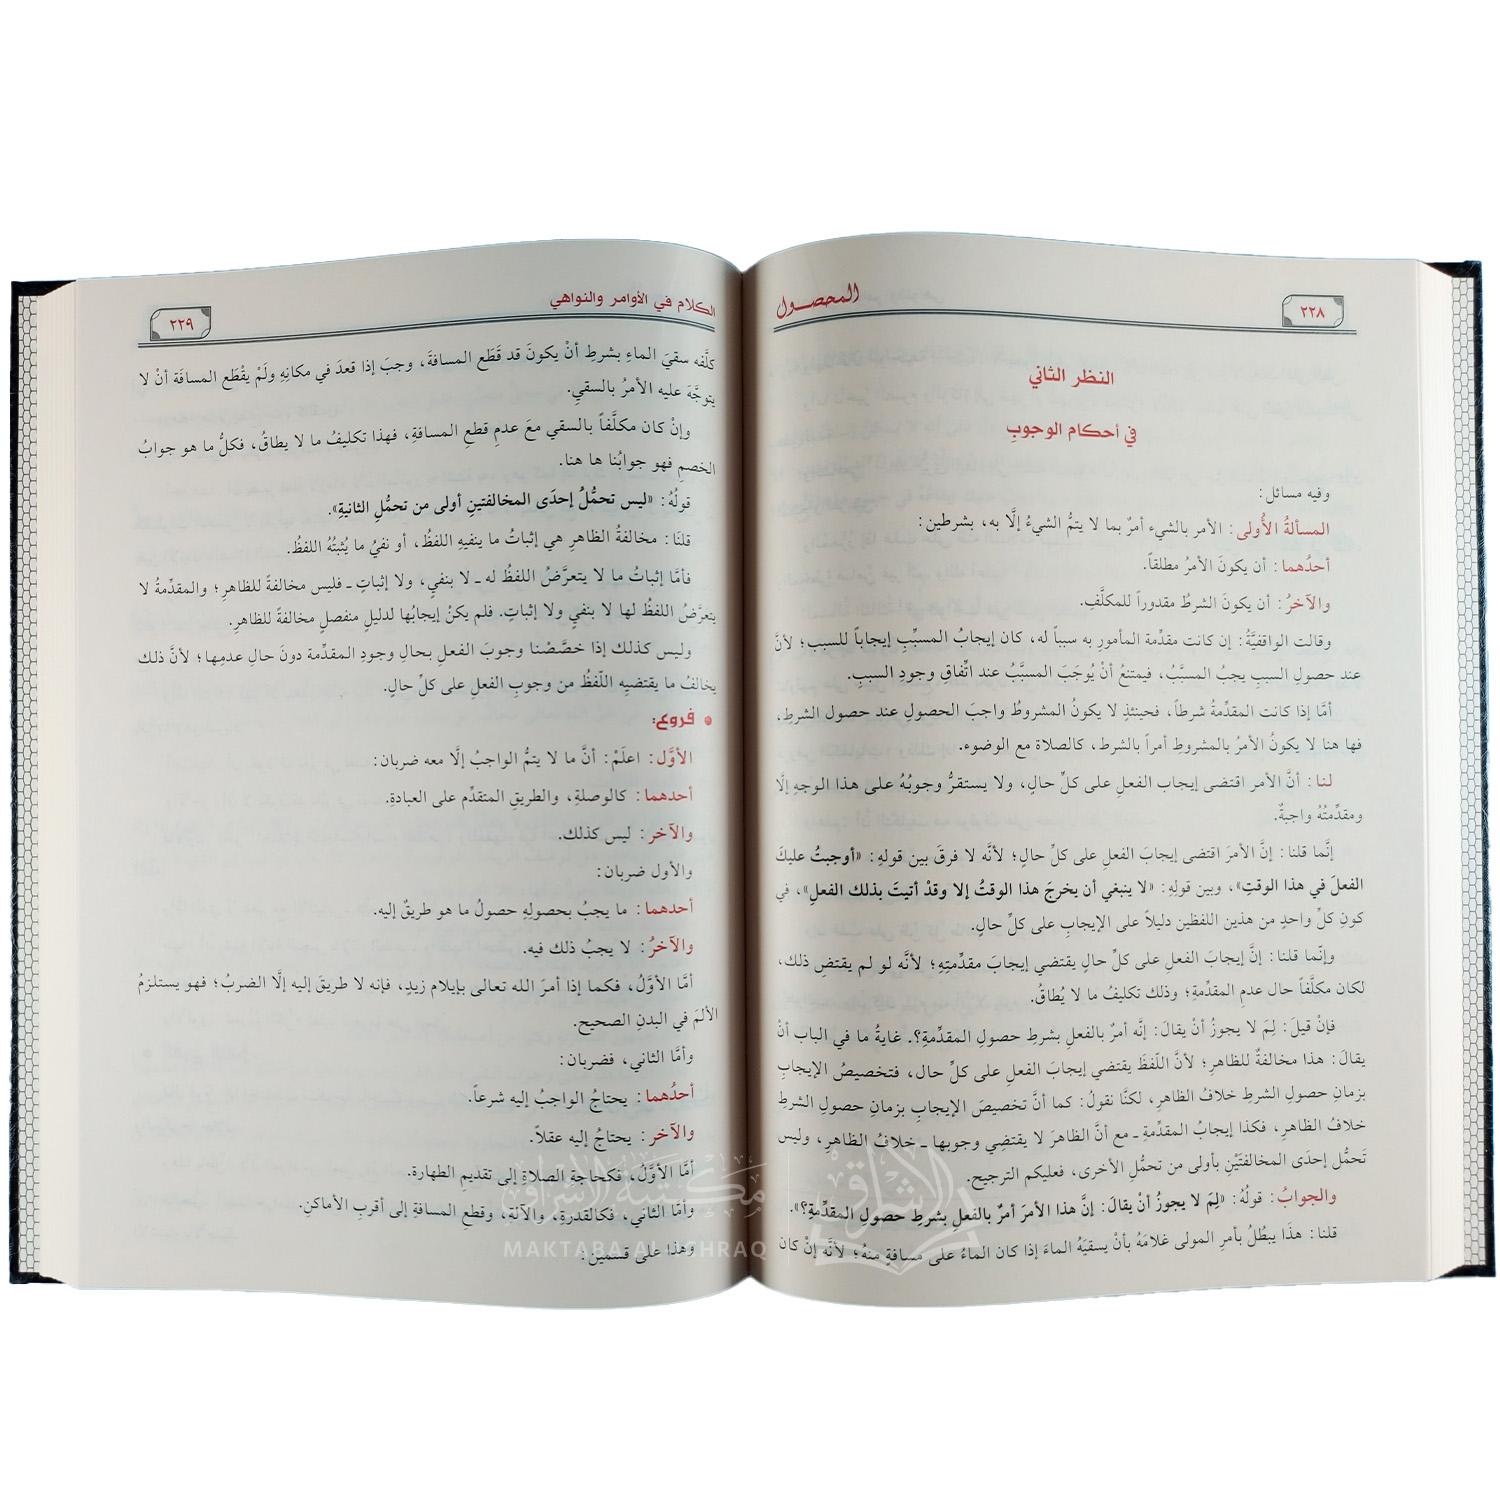 ٢٢٨
المحصول
النظر الثاني
في أحكام الوجوبِ
وفيه مسائل:
المسألةُ الأُولى: الأمر بالشيء أمرٌ بما لا يتمُّ الشيءُ إلَّا به، بشرطين:
أحدُهما: أن يكونَ الأمرُ مطلقاً.
والآخرُ: أن يكونَ الشرطُ مقدوراً للمكلَّفِ.
وقالت الواقفيَّةُ: إن كانت مقدِّمة المأمورِ به سبباً له، كان إيجابُ المسبَّبِ إيجاباً للسببِ؛ لأنَّ
عند حصولِ السببِ يجبُ المسبَّبُ، فيمتنعُ أنْ يُوجَبَ المسبَّبُ عند اتِّفاقِ وجودِ السببِ.
أمَّا إذا كانت المقدِّمةُ شرطاً، فحينئذٍ لا يكونُ المشروطُ واجبَ الحصولِ عند حصول الشرطِ،
فها هنا لا يكونُ الأمرُ بالمشروطِ أمراً بالشرط، كالصلاة مع الوضوء.
لنا: أنَّ الأمر اقتضى إيجاب الفعلِ على كلِّ حالٍ، ولا يستقرُّ وجوبُهُ على هذا الوجهِ إلَّا
ومقدِّمتُهُ واجبةٌ.
إنَّما قلنا: إنَّ الأمرَ اقتضى إيجابَ الفعلِ على كلِّ حالٍ؛ لأنَّه لا فرقَ بين قولهِ: «أوجبتُ عليكَ
الفعلَ في هذا الوقتِ»، وبين قولهِ: «لا ينبغي أن يخرجَ هذا الوقتُ إلا وقدْ أتيتَ بذلك الفعلِ»، في
كونِ كلِّ واحدٍ من هذين اللفظين دليلاً على الإيجابِ على كلِّ حالٍ.
وإنّما قلنا: إنَّ إيجابَ الفعلِ على كلِّ حالٍ يقتضي إيجابَ مقدِّمتِهِ؛ لأنَّه لو لم يقتضِ ذلك،
لكان مكلَّفاً حال عدمِ المقدِّمةِ؛ وذلك تكليفُ ما لا يُطاقُ.
فإنْ قيلَ: لِمَ لا يجوزُ أن يقالَ: إنَّه أمرٌ بالفعلِ بشرطِ حصولِ المقدِّمةِ؟. غايةُ ما في الباب أنْ
يقالَ: هذا مخالفةٌ للظاهرِ؛ لأنَّ اللّفظَ يقتضي إيجابَ الفعلِ على كلِّ حال، فتخصيصُ الإيجابِ
بزمانِ حصولِ الشرطِ خلافُ الظاهرِ، لكنَّا نقولُ: كما أنَّ تخصيصَ الإيجابِ بزمانِ حصولِ الشرطِ
خلافُ الظاهرِ، فكذا إيجابُ المقدِّمةِ ـ مع أنَّ الظاهرَ لا يقتضِي وجوبها ـ خلافُ الظاهرِ، وليس
تَحمُّل إحدَى المخالفتَيْنِ بأولى من تحمُّلِ الأخرى، فعليكم الترجيح.
والجوابُ: قولُهُ: «لِمَ لا يجوزُ أنْ يقالَ: إنَّ هذا الأمرَ أمرٌ بالفعلِ بشرطِ حصولِ المقدِّمةِ؟».
قلنا: هذَا يبطُلُ بأمرِ المولى غلامَهُ بأنْ يسقيَهُ الماءَ إذا كان الماءُ على مسافةٍ منهُ؛ لأنَّه إنْ كان
الكلام في الأوامر والنواهي
٢٢٩
كلَّفه سقيَ الماءِ بشرطِ أنْ يكونَ قد قَطَع المسافةَ، وجبَ إذا قعدَ في مكانِهِ ولَمْ يقْطَع المسافَة أنْ لا
يتوجَّهَ عليه الأمرُ بالسقيِ.
وإنْ كان مكلَّفاً بالسقي معَ عدمِ قطعِ المسافةِ، فهذا تكليفُ ما لا يطاقُ، فكلُّ ما هو جوابُ
الخصمِ فهو جوابُنا ها هنا.
قولُهُ: «ليس تحمُّلُ إحدَى المخالفتينِ أولى من تحمُّلِ الثانيةِ».
قلنَا: مخالفةُ الظاهرِ هي إثباتُ ما ينفيهِ اللفظُ، أو نفيُ ما يُثبتُهُ اللفظُ.
فأمَّا إثباتُ ما لا يتعرَّضُ اللفظُ له ـ لا بنفيٍ، ولا إثباتٍ ـ فليس مخالفةً للظاهرِ؛ والمقدِّمةُ لا
يتعرَّضُ اللفظُ لها لا بنفيٍ ولا إثباتٍ. فلم يكنْ إيجابُها لدليلٍ منفصلٍ مخالفةً للظاهرِ.
وليس كذلك إذا خصَّصْنا وجوبَ الفعلِ بحالِ وجودِ المقدِّمة دونَ حالِ عدمِها؛ لأنَّ ذلك
يخالفُ ما يقتضيهِ اللّفظُ من وجوبِ الفعلِ على كلِّ حالٍ.
• فروع:
الأوَّل: اعلَمْ: أنَّ ما لا يتمُّ الواجبُ إلَّا معه ضربان:
أحدهما: كالوصلةِ، والطريقِ المتقدِّم على العبادةِ.
والآخر: ليس كذلك.
والأول ضربان:
أحدهما: ما يجبُ بحصولِهِ حصولُ ما هو طريقٌ إليه.
والآخرُ: لا يجبُ ذلك فيه.
أمَّا الأوَّلُ، فكما إذا أمرَ الله تعالى بإيلامِ زيدٍ، فإنه لا طريقَ إليه إلَّا الضربُ؛ فهو يستلزمُ
الألمَ في البدنِ الصحيح.
وأمَّا الثاني، فضربان:
أحدُهما: يحتاجُ الواجبُ إليه شرعاً.
والآخر: يحتاجُ إليه عقلاً.
أمَّا الأوَّلُ، فكحاجةِ الصلاةِ إلى تقديمِ الطهارة.
وأمَّا الثاني، فكالقدرةِ، والآلةِ، وقطعِ المسافةِ إلى أقربِ الأماكنِ.
وهذا على قسمين:
مكتبة الإشراق
الإشراق
MAKTABA AL-ISHRAQ